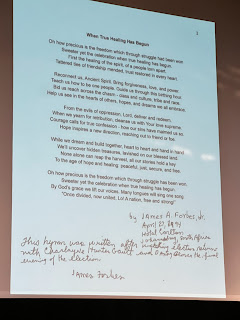 3
When True Healing Has Begun
Oh how precious is the freedom which through struggle had been won
Sweeter yet the celebration when true healing has begun.
First the healing of the spirit, of a people torn apart.
Tattered ties of friendship mended, trust restored in every heart.
Reconnect us, Ancient Spirit. Bring forgiveness, love, and power.
Teach us how to be one people. Guide us through this birthing hour.
Bid us reach across the chasm - class and culture, tribe and race.
Help us see in the hearts of others, hopes, and dreams we all embrace.
From the evils of oppression, Lord, deliver and redeem.
When we yearn for retribution, cleanse us with Your love supreme.
Courage calls for true confession - how our sins have maimed us so.
Hope inspires a new direction, reaching out to friend or foe.
While we dream and build together, head to heart and hand in hand
We'll uncover hidden treasures, lavished on our blessed land.
None alone can reap the harvest, all our stories hold a key
To the age of hope and healing, peaceful, just, secure, and free.
Oh how precious is the freedom which through struggle has been won.
Sweeter yet the celebration when true healing has begun.
By God's grace we lift our voices. Many tongues will sing one song
"Once divided, now united. Lo! A nation, free and strong!"
by James A. Forbes, Jr.
April 27, 1994
Hotel Carlton
Johannesburg, South Africa
This hymn was written after visiting election sites
with Charlayne Hunter Gault and on the final
evening of the election.
James Forbes